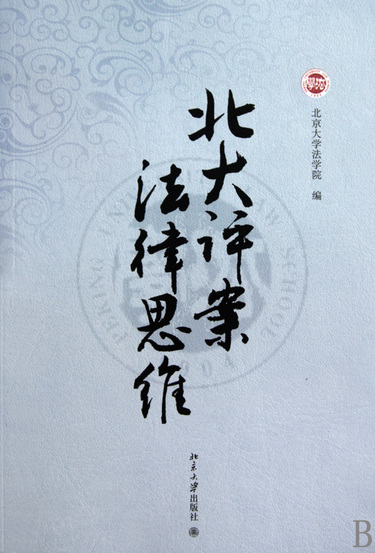 北京大学法学院 编
北大评案
法律思维
PEKING UNIVERSITY LAW SCHOOL
1904
北京大学出版社
B